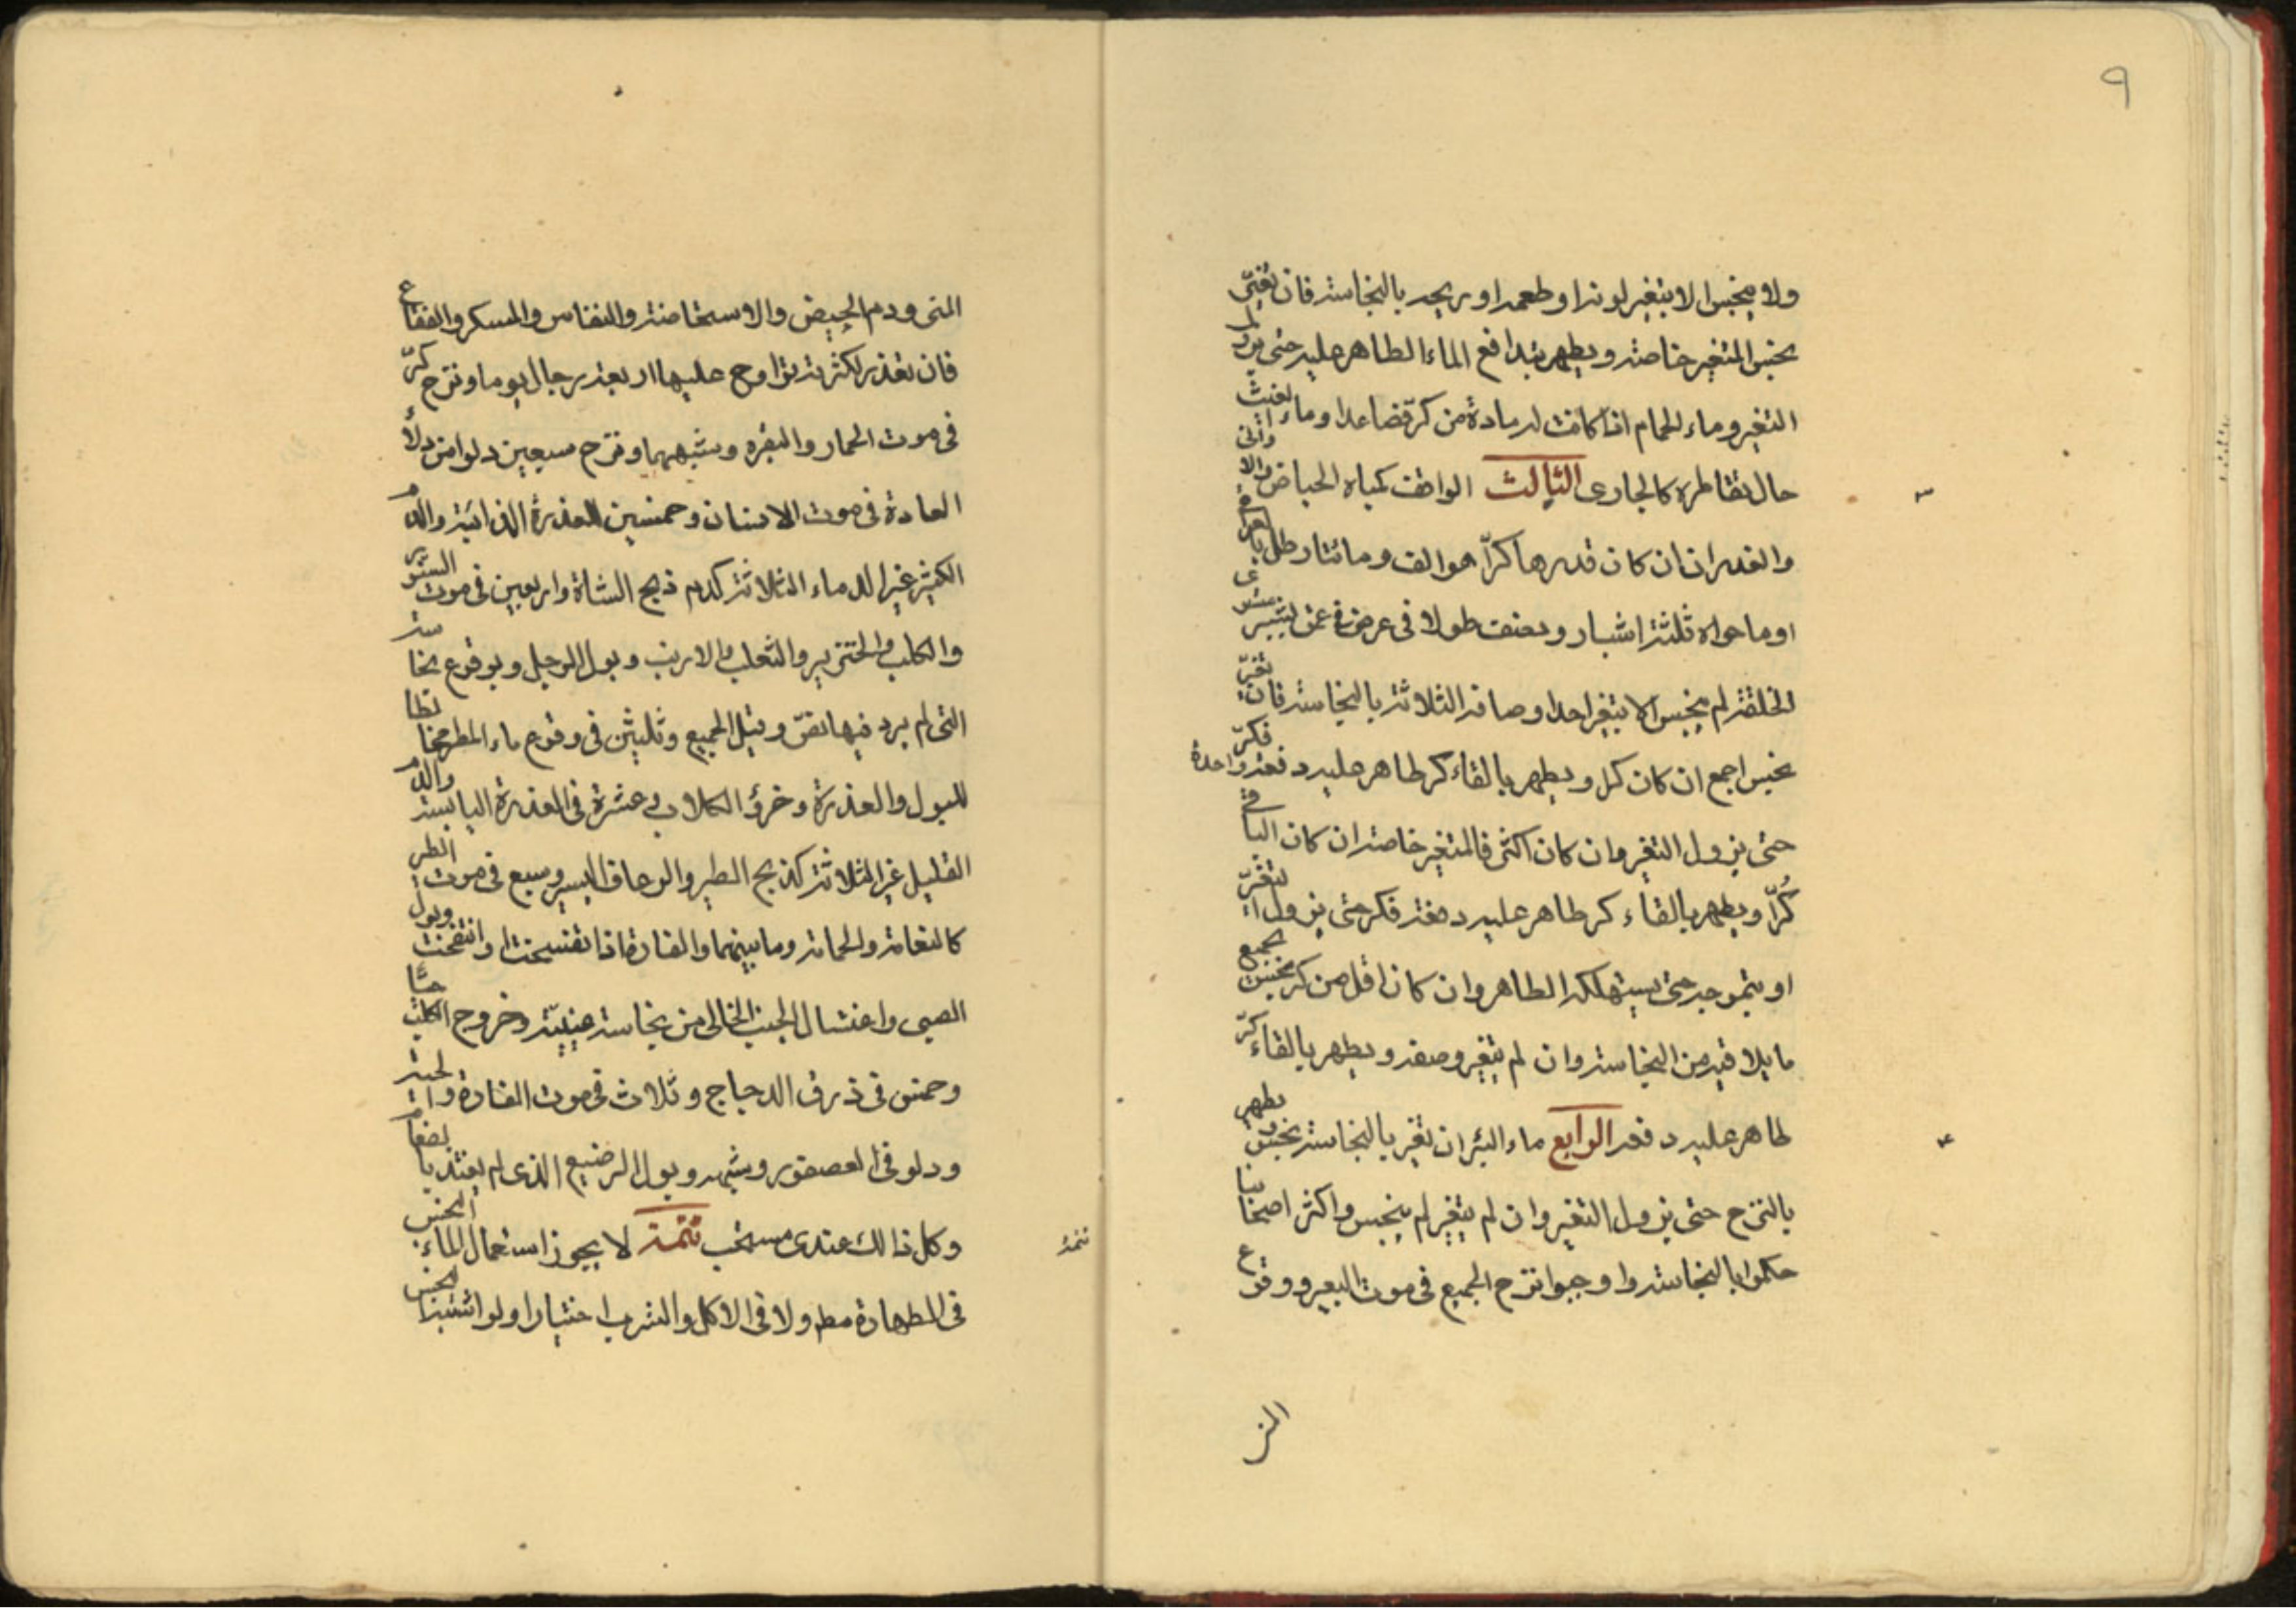 ٩
ولا ينجس الا بتغير لونه او طعمه او ريحه بالنجاسة فان تغير
نجس المتغير خاصة ويطهر بتدافع الماء الطاهر عليه حتى يزول
التغير وماء الحمام اذا كانت له مادة من كر فصاعدا وماء الغيث
حال تقاطره كالجارى الثالث الواقف كمياه الحياض والاوانى
والغدران ان كان قدرها كرّا هو الف ومائتا رطل بالعراقى
او ما حواه ثلثة اشبار ونصف طولا فى عرض فى عمق بشبر مستوى
الخلقة لم ينجس الا بتغير احد اوصافه الثلاثة بالنجاسة فان تغيّر
نجس اجمع ان كان كرا ويطهر بالقاء كر طاهر عليه دفعة واحدة فكرّ
حتى يزول التغير وان كان اكثر فالمتغير خاصة ان كان الباقى
كُرّا ويطهر بالقاء كر طاهر عليه دفعة فكر حتى يزول التغيّر
او بتموجه حتى يستهلكه الطاهر وان كان اقل من كر نجس بجميع
ما يلاقيه من النجاسة وان لم يتغير وصفه ويطهر بالقاء كرّ
طاهر عليه دفعة الرابع ماء البئر ان تغير بالنجاسة نجس ويطهر
بالنزح حتى يزول التغير وان لم يتغير لم ينجس واكثر اصحابنا
حكموا بالنجاسة واوجبوا نزح الجميع فى موت البعير ووقوع
٣
٤
المنى ودم الحيض والاستحاضة والنفاس والمسكر والفقاع
فان تعذر لكثرته تراوح عليها اربعة رجال يوما ونزح كرّ
فى موت الحمار والبقره وشبههما ونزح سبعين دلوا من دلاء
العادة فى موت الانسان وخمسين للعذرة الذائبة والدم
الكثير غير الدماء الثلاثة كدم ذبح الشاة واربعين فى موت السنور
والكلب والخنزير والثعلب والارنب وبول الرجل ولوقوع نجاسة
التى لم يرد فيها نصّ وقيل الجميع وثلثين فى وقوع ماء المطر مخالطا
للبول والعذرة وخرؤ الكلاب وعشرة فى العذرة اليابسة والدم
القليل غير الثلاثة كذبح الطير والرعاف اليسير وسبع فى موت الطير
كالنعامة والحمامة وما بينهما والفارة اذا تفسخت او انتفخت وبول
الصبى واغتسال الجنب الخالى من نجاسة عينيّة وخروج الكلب حيّا
وخمس فى ذرق الدجاج وثلاث فى موت الفارة والحية
ودلو فى العصفور وشبهه وبول الرضيع الذى لم يغتذ بالطعام
وكل ذالك عندى مستحب تتمة لا يجوز استعمال الماء النجس
فى الطهارة مط ولا فى الاكل والشرب اختيارا ولو اشتبه النجس
تتمة